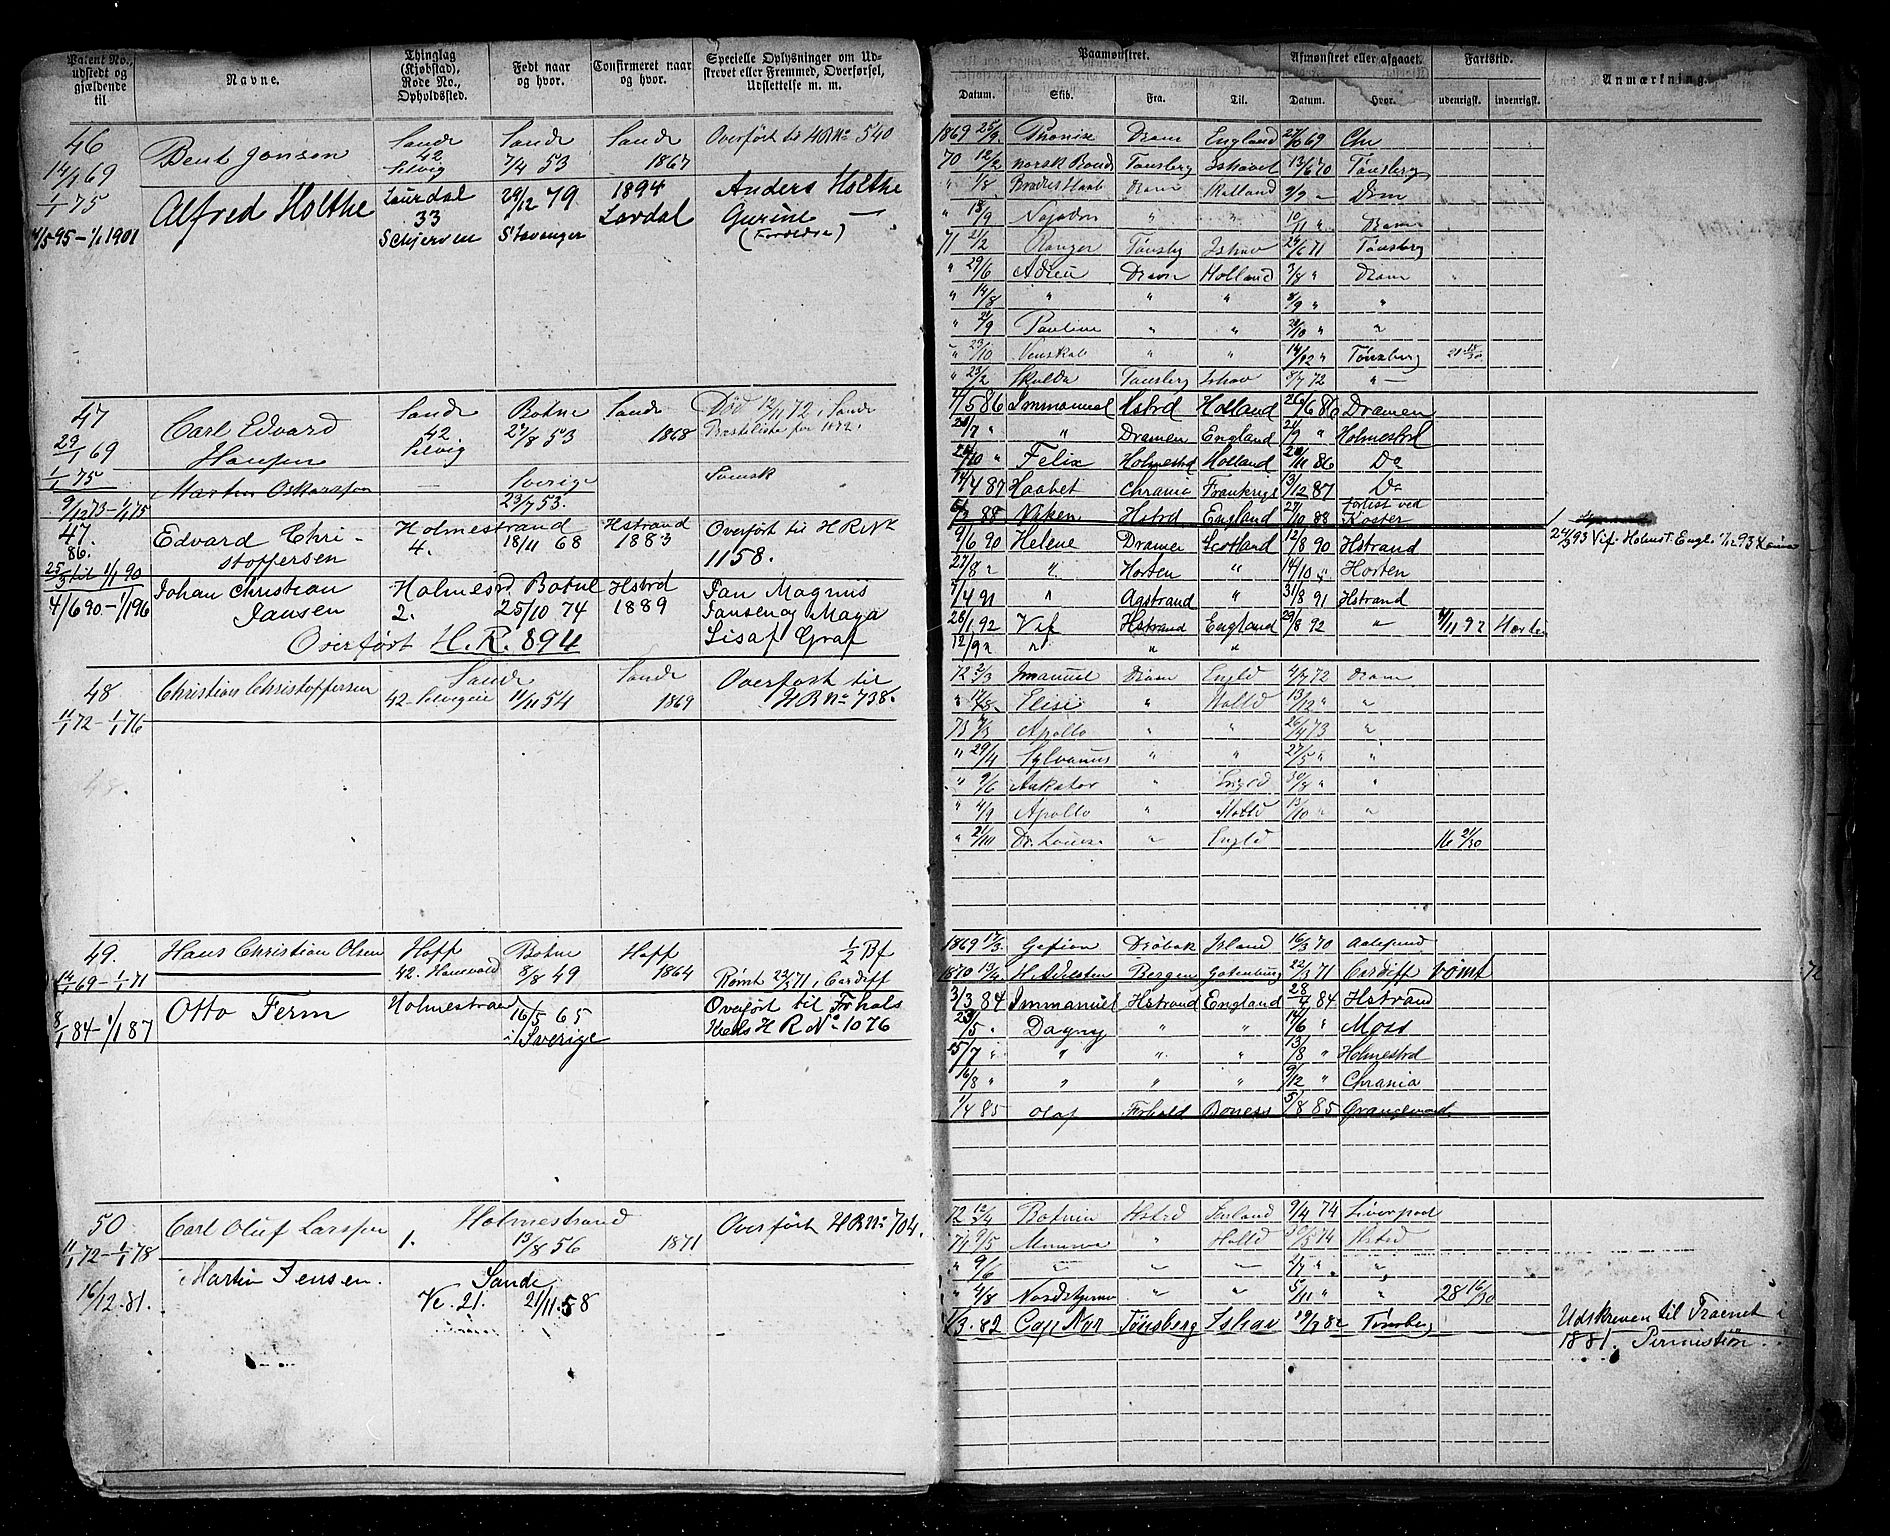 Patent No., udstedt og gjældende til
Navne.
Thinglag (Kjøbstad), Rode No., Opholdssted.
Født naar og hvor.
Confirmeret naar og hvor.
Specielle Oplysninger om Udstrevet eller Fremmed, Overførsel, Udslettelse m. m.
46
14/1 69
1/1 75
Bent Jonsen
Sande 42 Selvig
Sande 7/4 53
Sande 1867
Overført til HR No 540
4/5 95 - 1/1 1901
Alfred Holthe
Laurdal 33 Schjerven
24/12 79 Stavanger
1894 Lardal
Anders Holthe
Gurine —
(Forældre)
47
29/1 69
1/1 75
Carl Edvard Hansen
Sande 42 Selvig
Botne 27/8 53
Sande 1868
Død 12/11 72 i Sande
Præsteliste for 1872.
9/12 73 - 1/1 75
Martin Oskarssen
—
Sverige 23/7 53.
Svensk
47
86.
25/3 til 1/1 90
Edvard Christoffersen
Holmestrand 4.
18/11 68
Hstrand 1883
Overført til H R No 1158.
4/6 90 - 1/1 96
Johan Christian Jansen
Holmesrd 2.
Botne 25/10 74
Hstrd 1889
Jan Magnus
Jansen og Maya
Lisaf Graf
Overført H. R. 894
48
11/1 72 - 1/1 76
Christian Christoffersen
Sande
42 Selvigeie
11/11 54
Sande 1869
Overført til
HR No 738.
48.
49.
14/1 69 - 1/1 71
Hans Christian Olsen
Hoff 42. Hanevold
Botne 8/8 49
Hoff 1864
1/2 Bf
Rømt 22/3 71 i Cardiff
8/1 84 - 1/1 87
Otto Ferm
Holmestrand
16/5 65 i Sverige
Overført til Frhals
Kreds H R No 1076
50
11/1 72 - 1/1 78
Carl Oluf Larssen
Holmestrand
1.
13/8 56
1871
Overført HR No 704.
16/12 81.
Martin Jensen.
Sande
Ve. 21.
21/11 58
Paamønstret.
Afmønstret eller afgaaet.
Fartstid.
Anmærkning.
Datum. Skib. Fra. Til. Datum. Hvor. udenrigst. indenrigst.
1869 25/9 Phønix Dram England 27/10 69 Chr
70 12/2 norsk Bond Tønsberg Ishavet 13/6 70 Tønsberg
" 1/8 Brødres Haab Dram Holland 9/9 — Drm
" 18/9 " " 10/11 " Dram
71 21/2 Ranger Tønsby Ishav 24/6 71 Tønsberg
" 29/6 Adieu Dram Holland 3/8 " Dram
" 14/8 " " " 8/9 " "
" 21/9 Pauline " " 20/10 " "
" 23/10 Venskab " " 14/12 " Tønsberg
" 23/2 Skulda Tønsberg Ishav 8/7 72 " —
4/5 86 Immanuel Hstrd Holland 26/6 86 Dramen
20/7 " " Dramen England 21/9 " Holmestrd
/10 " Felix Holmestrd Holland 20/11 86 Do
14/4 87 Haabet Chrania Frankrig 13/12 87 Do
/3 88 Nøken Hstrd England 27/10 88 forlist ved Koster
9/6 90 Helene Dramen Scotland 12/8 90 Hstrand
23/8 " " Horten " 14/10 " Horten
7/4 91 " Agstrand " 31/8 91 Hstrand
28/1 92 Vif Hstrand England 29/8 92 " 4/11 92 Horten
12/9 " " " "
72 2/3 Imanuel Dram Engld 4/7 72 Dram
" 17/8 Elise " Holld 13/12 " "
73 7/3 Apollo " " 26/4 73 "
" 29/4 Sylvanus " " 27/5 " "
" 9/6 Aukator " Engld 30/8 " "
" 4/9 Apollo " Holld 13/10 " "
" 21/10 Dr. Louise " Engld 16 21/30
1869 17/3 Gefion Drøbak Island 16/3 70 Aalesund
1870 13/4 H. Adelsten Bergen Gotenburg 22/3 71 Cardiff rømt
3/3 84 Immanuel Hstrand England 28/4 84 Hstrand
23/5 " Dagny " " 14/6 " Moss
15/7 " " " " 13/8 " Holmestrd
16/8 " " " " 9/12 " Chrania
1/4 85 Olaf Frhald Boness 5/8 85 Grangemout
72 12/4 Hstrd 9/4 74 Liverpool
74 9/5 Minerva " Holld 30/5 74 Hstrd
" 9/6 " " " 2/7 " "
" 4/8 Nordstjernen " " 5/11 " " 28 16/30
1/3 82 Cap Nor Tønsberg Ishav 19/7 82 Tønsberg
24/3 93 Vif. Holmst. Engl.
Udskreven til Traenet i
1881. Permistion.
72